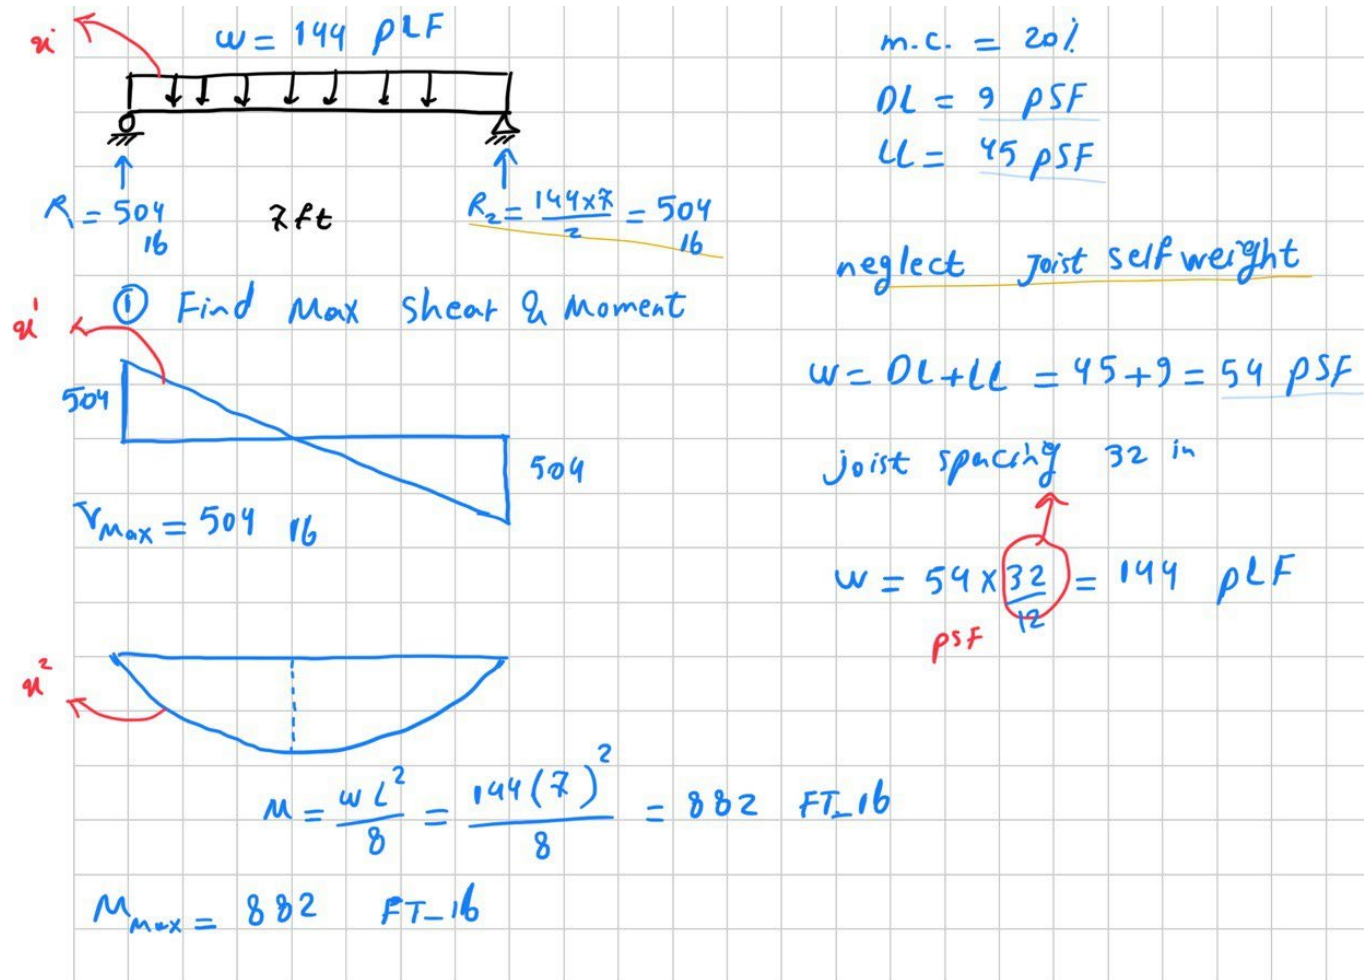 w = 144 PLF
x°
R = 504 lb
7ft
R₂ = 144x7/2 = 504 lb
① Find Max shear & Moment
x¹
504
504
VMax = 504 lb
x²
M = wL²/8 = 144(7)²/8 = 882 FT_lb
MMax = 882 FT_lb
m.c. = 20%
DL = 9 PSF
LL = 45 PSF
neglect Joist self weight
w = DL+LL = 45+9 = 54 PSF
joist spacing 32 in
w = 54 x 32/12 = 144 PLF
PSF